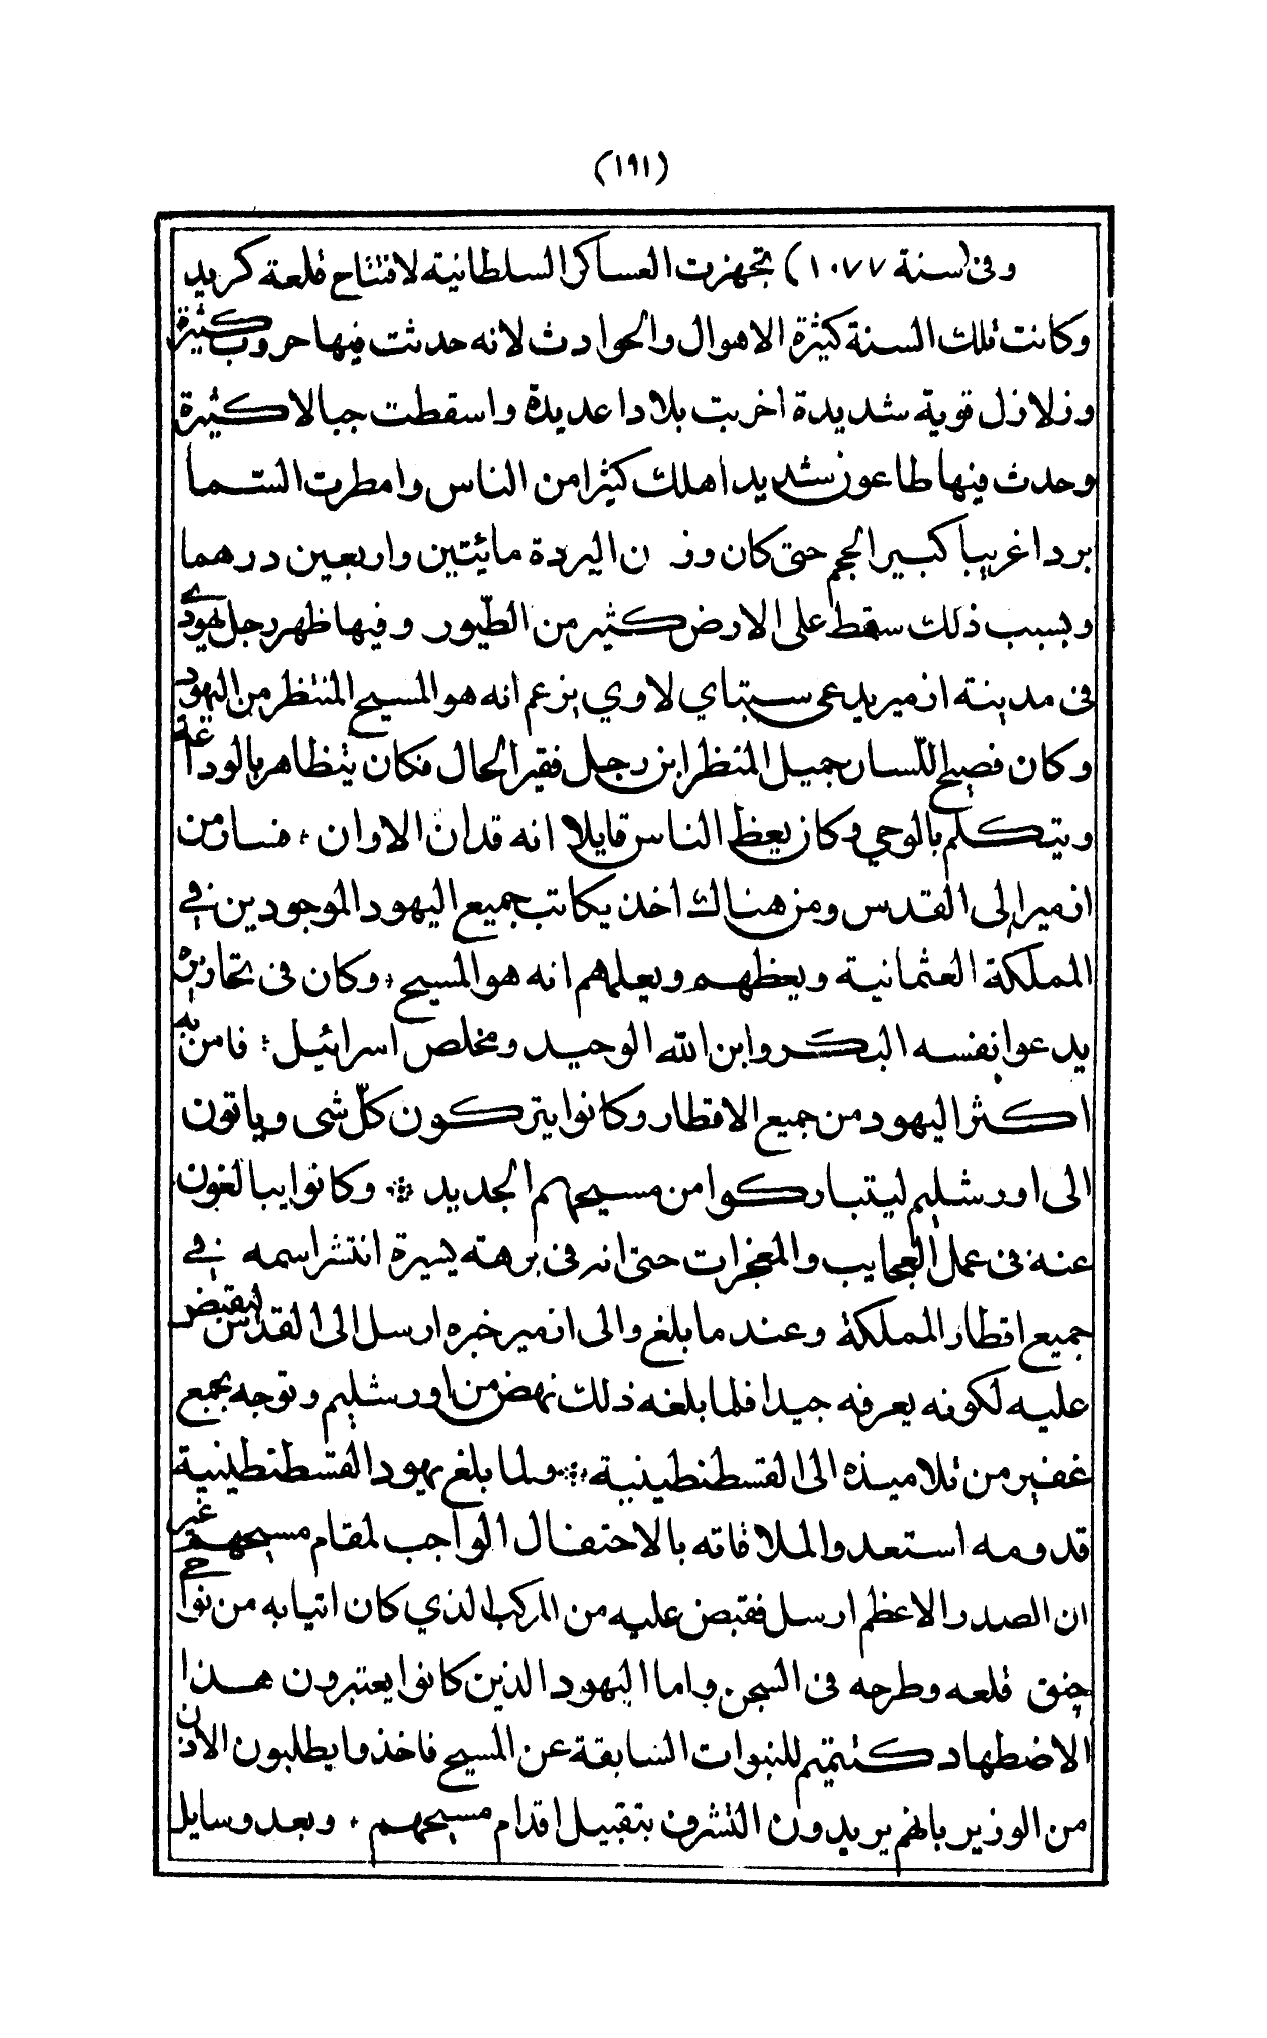 (١٩١)
وفى (سنة ١٠٧٧) تجهزت العساكر السلطانية لافتتاح قلعة كريد
وكانت تلك السنة كثيرة الاهوال والحوادث لانه حدثت فيها حروب كثيرة
وزلازل قوية شديدة اخربت بلادا عديدة واسقطت جبالا كثيرة
وحدث فيها طاعون شديد اهلك كثيرا من الناس وامطرت السّما
بردا غريبا كبير الحجم حتى كان وزن البردة مائيتين واربعين درهما
وبسبب ذلك سقط على الارض كثير من الطّيور وفيها ظهر رجل يهودي
فى مدينة ازمير يدعى سبتاي لاوي يزعم انه هو المسيح المنتظر من اليهود
وكان فصيح اللّسان جميل المنظر ابن رجل فقير الحال فكان يتظاهر بالوداعة
ويتكلم بالوحي وكان يعظ الناس قايلا انه قد ان الاوان ؛ فسار من
ازمير الى القدس ومن هناك اخذ يكاتب جميع اليهود الموجودين في
المملكة العثمانية ويعظهم ويعلمهم انه هو المسيح ، وكان فى تحاريره
يدعوا نفسه البكر وابن الله الوحيد ومخلص اسرائيل ؛ فامن به
اكثر اليهود من جميع الاقطار وكانوا يتركون كلّ شى وياتون
الى اورشليم ليتباركوا من مسيحهم الجديد ⁘ وكانوا يبالغون
عنه فى عمل العجايب والمعجزات حتى انه فى برهته يسيرة انتشر اسمه في
جميع اقطار المملكة وعند ما بلغ والى ازمير خبره ارسل الى القدس ليقبض
عليه لكونه يعرفه جيدا فلما بلغه ذلك نهض من اورشليم وتوجه بجمع
غفير من تلاميذه الى القسطنطينية ⁘ ولما بلغ يهود القسطنطينية
قدومه استعدوا لملاقاته بالاحتفال الواجب لمقام مسيحهم غير
ان الصدر الاعظم ارسل فقبض عليه من المركب الذي كان اتيا به من نواحي
چنق قلعه وطرحه فى السجن واما اليهود الذين كانوا يعتبرون هذا
الاضطهاد كتتميم للنبوات السّابقة عن المسيح فاخذوا يطلبون الاذن
من الوزير بانهم يريدون التشرف بتقبيل اقدام مسيحهم ٠ وبعد وسايل